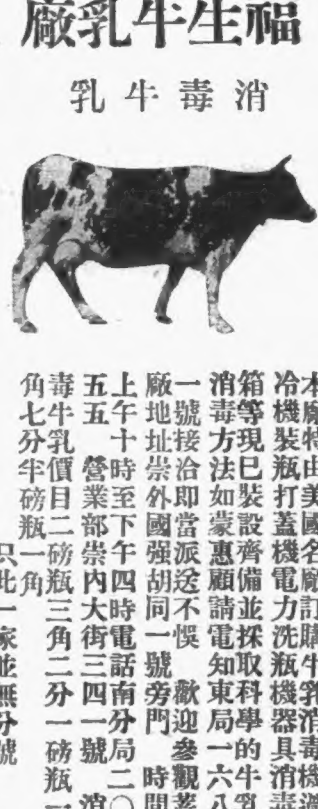 福生牛乳廠
消毒牛乳
本廠特由美國名廠訂購牛乳消毒機
冷機裝瓶打蓋機電力洗瓶機器具消毒
箱等現已裝設齊備並採取科學的牛乳
消毒方法如蒙惠顧請電知東局一六八
一號接洽即當派送不悞 歡迎參觀
廠地址崇外國强胡同一號旁門 時間
上午十時至下午四時電話南分局二〇
五五 營業部崇內大街三四一號 消
毒牛乳價目二磅瓶三角二分一磅瓶一
角七分半磅瓶一角
只此一家並無分號